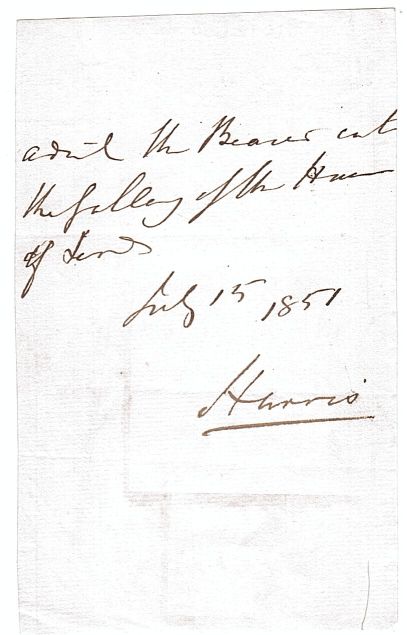 admit the Bearer int
the Gallery of the House
of Lords
July 15 1851
Harris